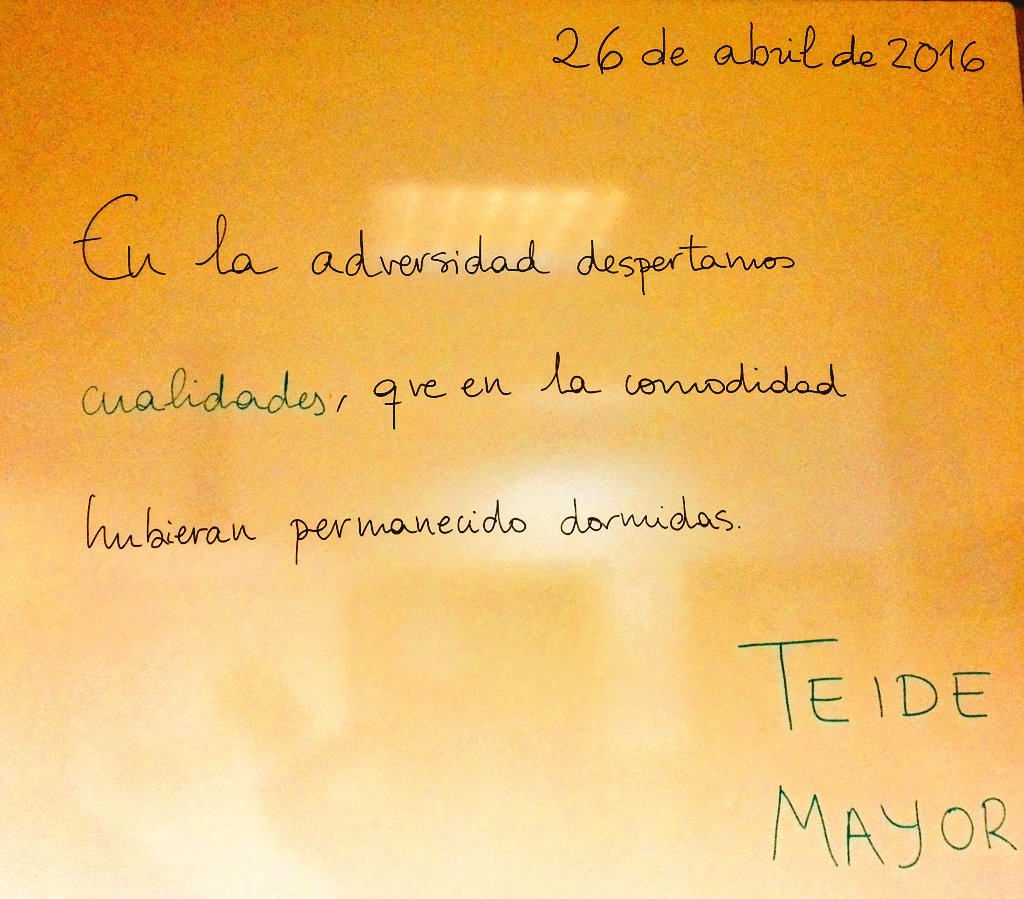 26 de abril de 2016
En la adversidad despertamos
cualidades, que en la comodidad
hubieran permanecido dormidas.
TEIDE
MAYOR